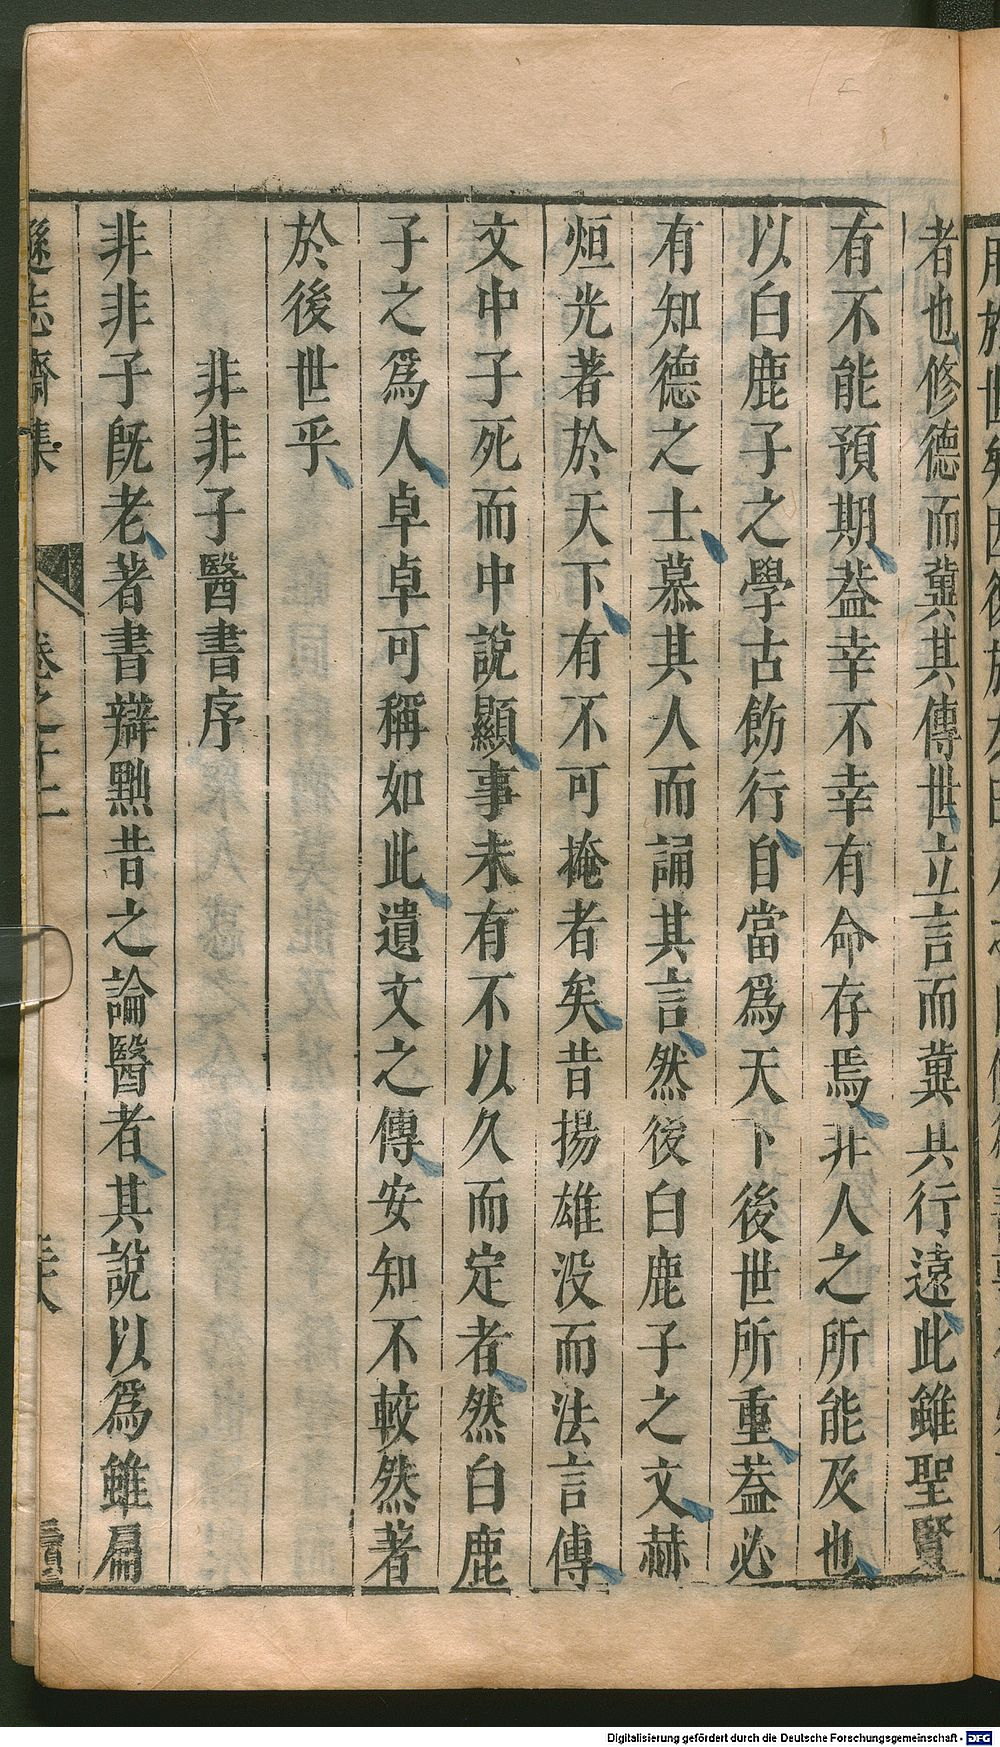 者也修德而冀其傳世立言而冀其行遠此雖聖賢
有不能預期葢幸不幸有命存焉非人之所能及也
以白鹿子之學古飭行自當爲天下後世所重葢必
有知德之士慕其人而誦其言然後白鹿子之文赫
烜光著於天下有不可掩者矣昔揚雄没而法言傳
文中子死而中說顯事未有不以久而定者然白鹿
子之爲人卓卓可稱如此遺文之傳安知不較然著
於後世乎
非非子醫書序
非非子既老著書辯黜昔之論醫者其說以爲雖扁
遜志齋集 卷之十二
Digitalisierung gefördert durch die Deutsche Forschungsgemeinschaft - DFG